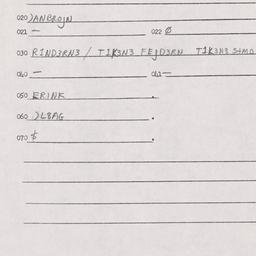 020 )ANBROJN
021 — 022 ø
030 R1ND3RN3 / T1K3N3 FEJD3RN T1K3N3
040 — 041 —
050 ERINK .
060 )L8AG .
070 $ .